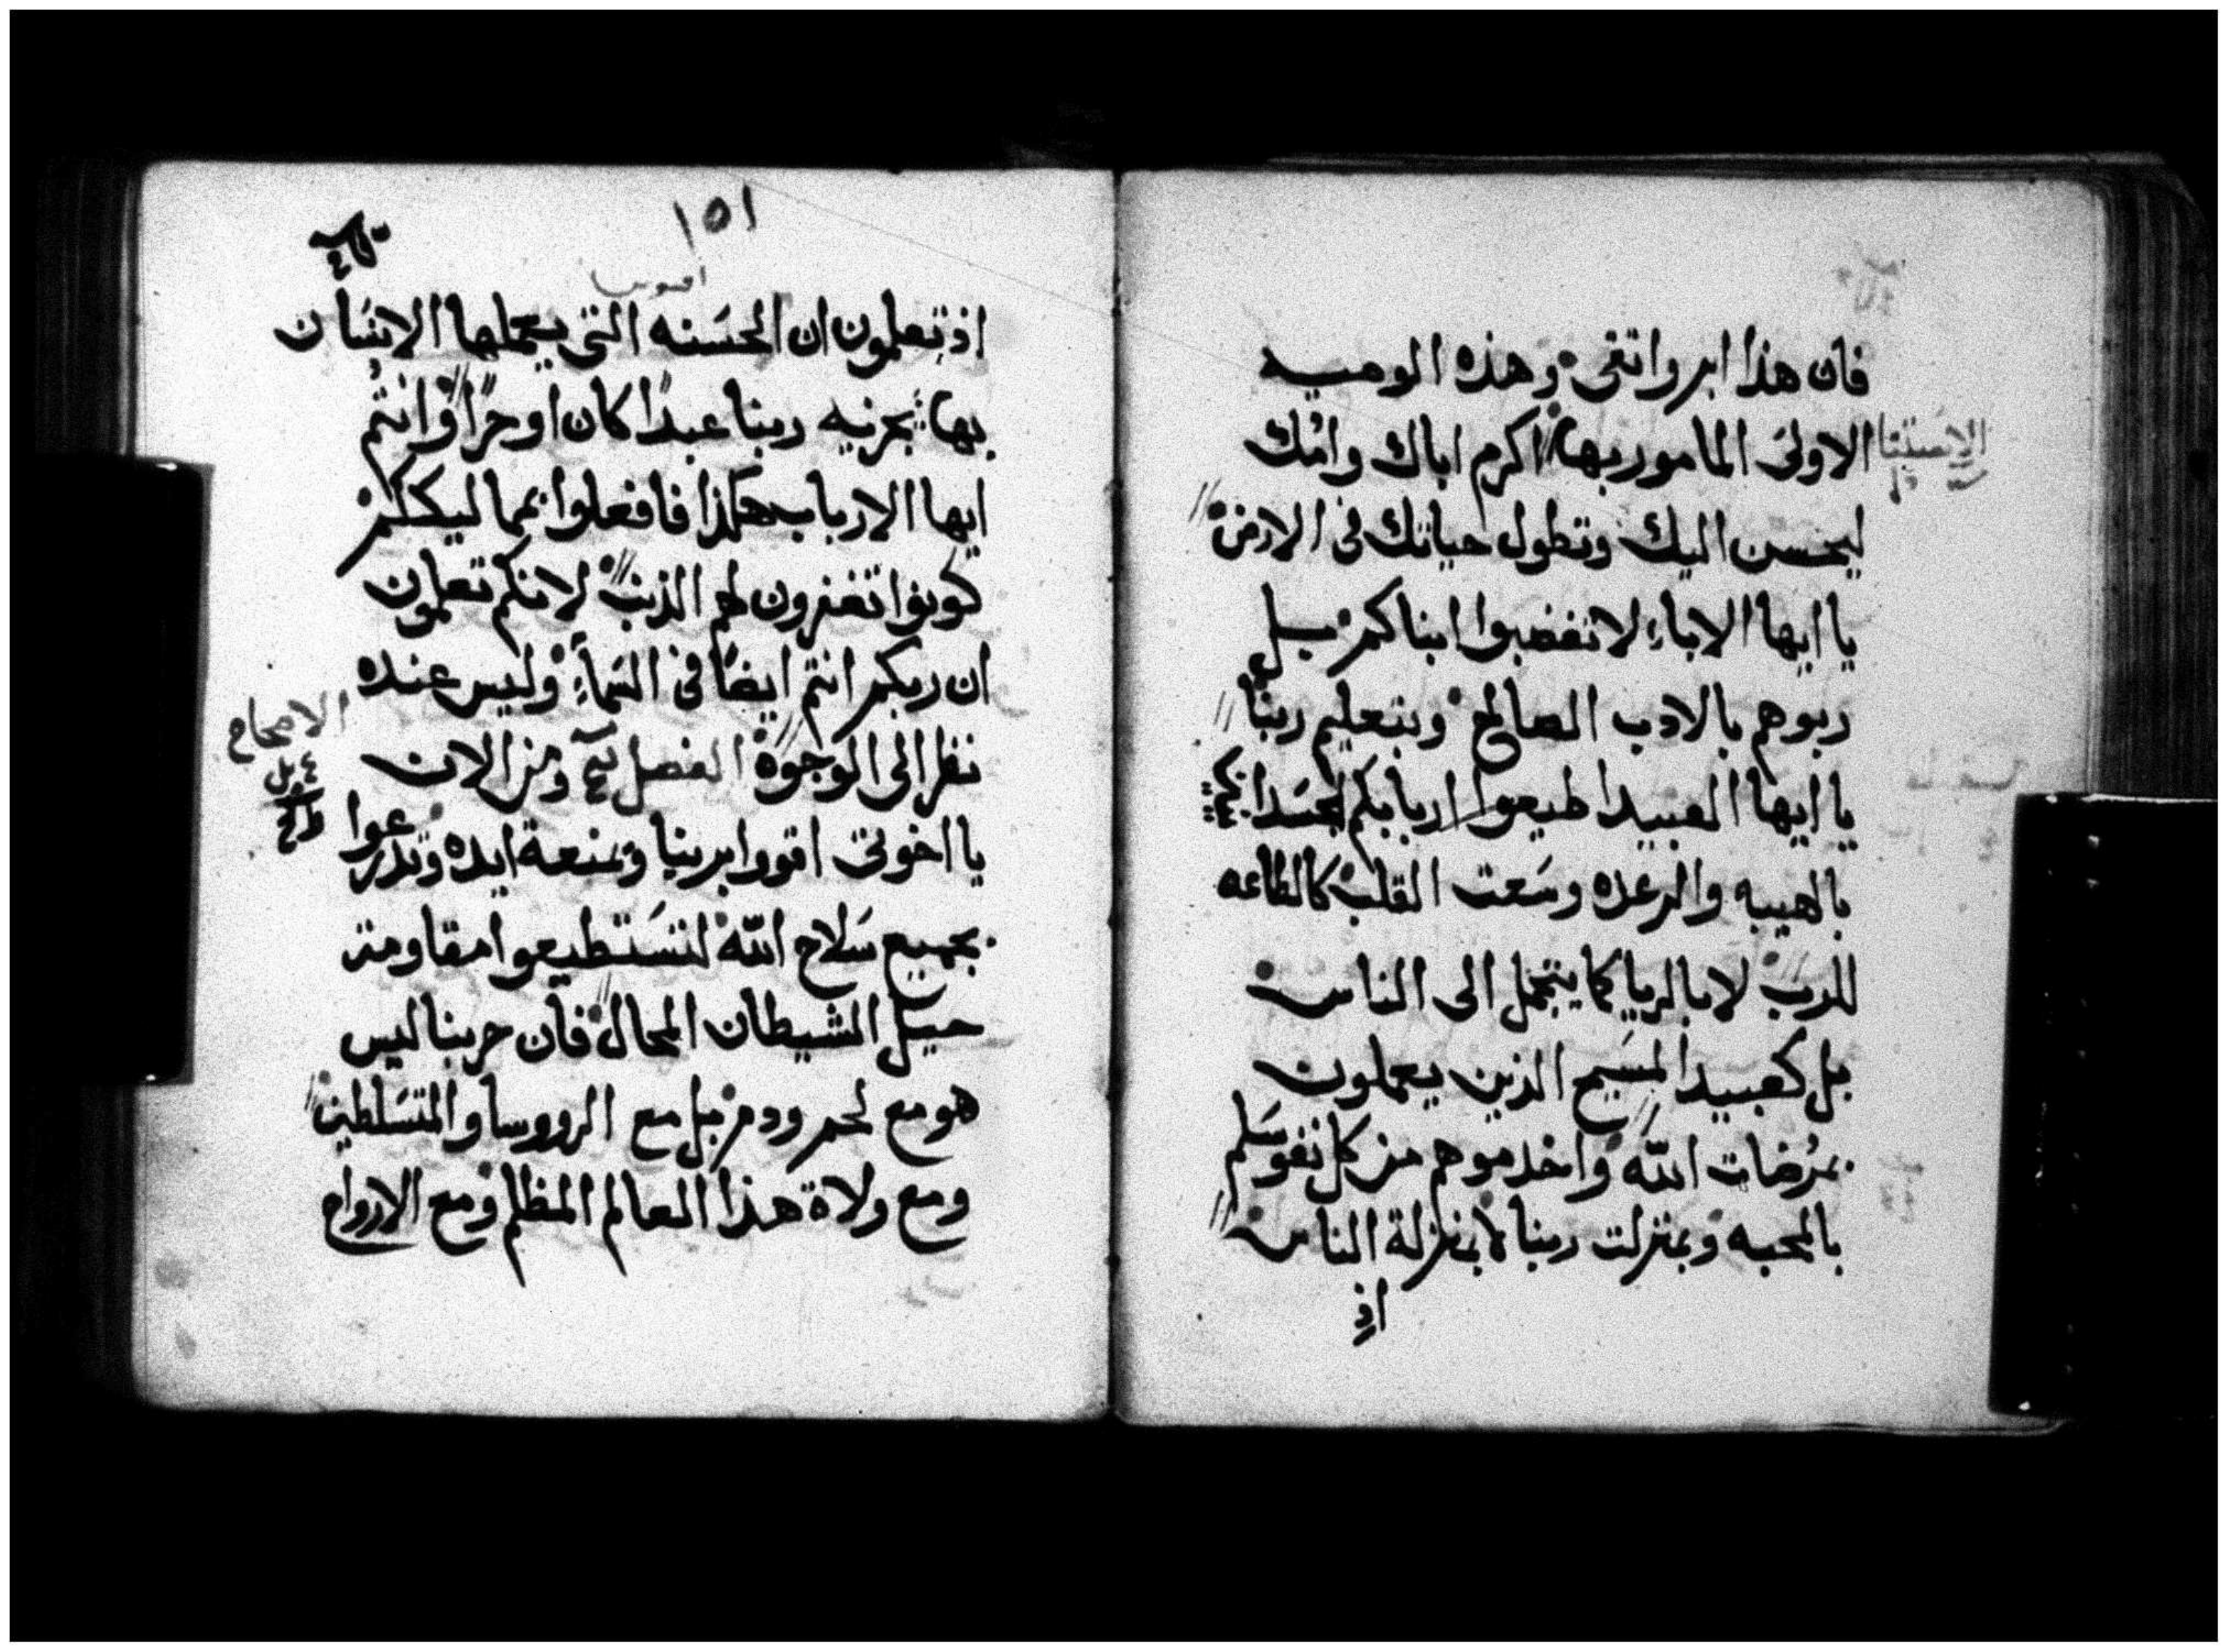 فان هذا ابر واتقى وهذه الوصيه
الاولى المامور بها اكرم اباك وامك
ليحسن اليك وتطول حياتك فى الارض
يا ايها الاباء لا تغضبوا ابناكم بل
ربوهم بالادب الصالح وبتعليم ربنا
يا ايها العبيد اطيعوا اربابكم
بالهيبه والرعده وسعت القلب كالطاعه
للرب لا بالريا كما يتجمل الى الناس
بل كعبيد المسيح الذين يعملون
بمرضات الله واخدموهم من كل نفوسكم
بالمحبه وبمنزلت ربنا لا بمنزلة الناس
اذ
١٥١
اذ تعلمون ان الحسنه التى يعملها الانسان
بها يجزيه ربنا عبدا كان او حرا وانتم
ايها الارباب هكذا فافعلوا بمماليككم
كونوا تغفرون لهم الذنب لانكم تعلمون
ان ربكم انتم ايضا فى السماء وليس عنده
نظر الى الوجوه الفصل ومن الان
الاصحاح
يا اخوتى اقووا بربنا وبمنعة ايده وتدرعوا
بجميع سلاح الله لتستطيعوا مقاومة
حيل الشيطان المحال فان حربنا ليس
هو مع لحم ودم بل مع الرووسا والمتسلطين
ومع ولاة هذا العالم المظلم ومع الارواح